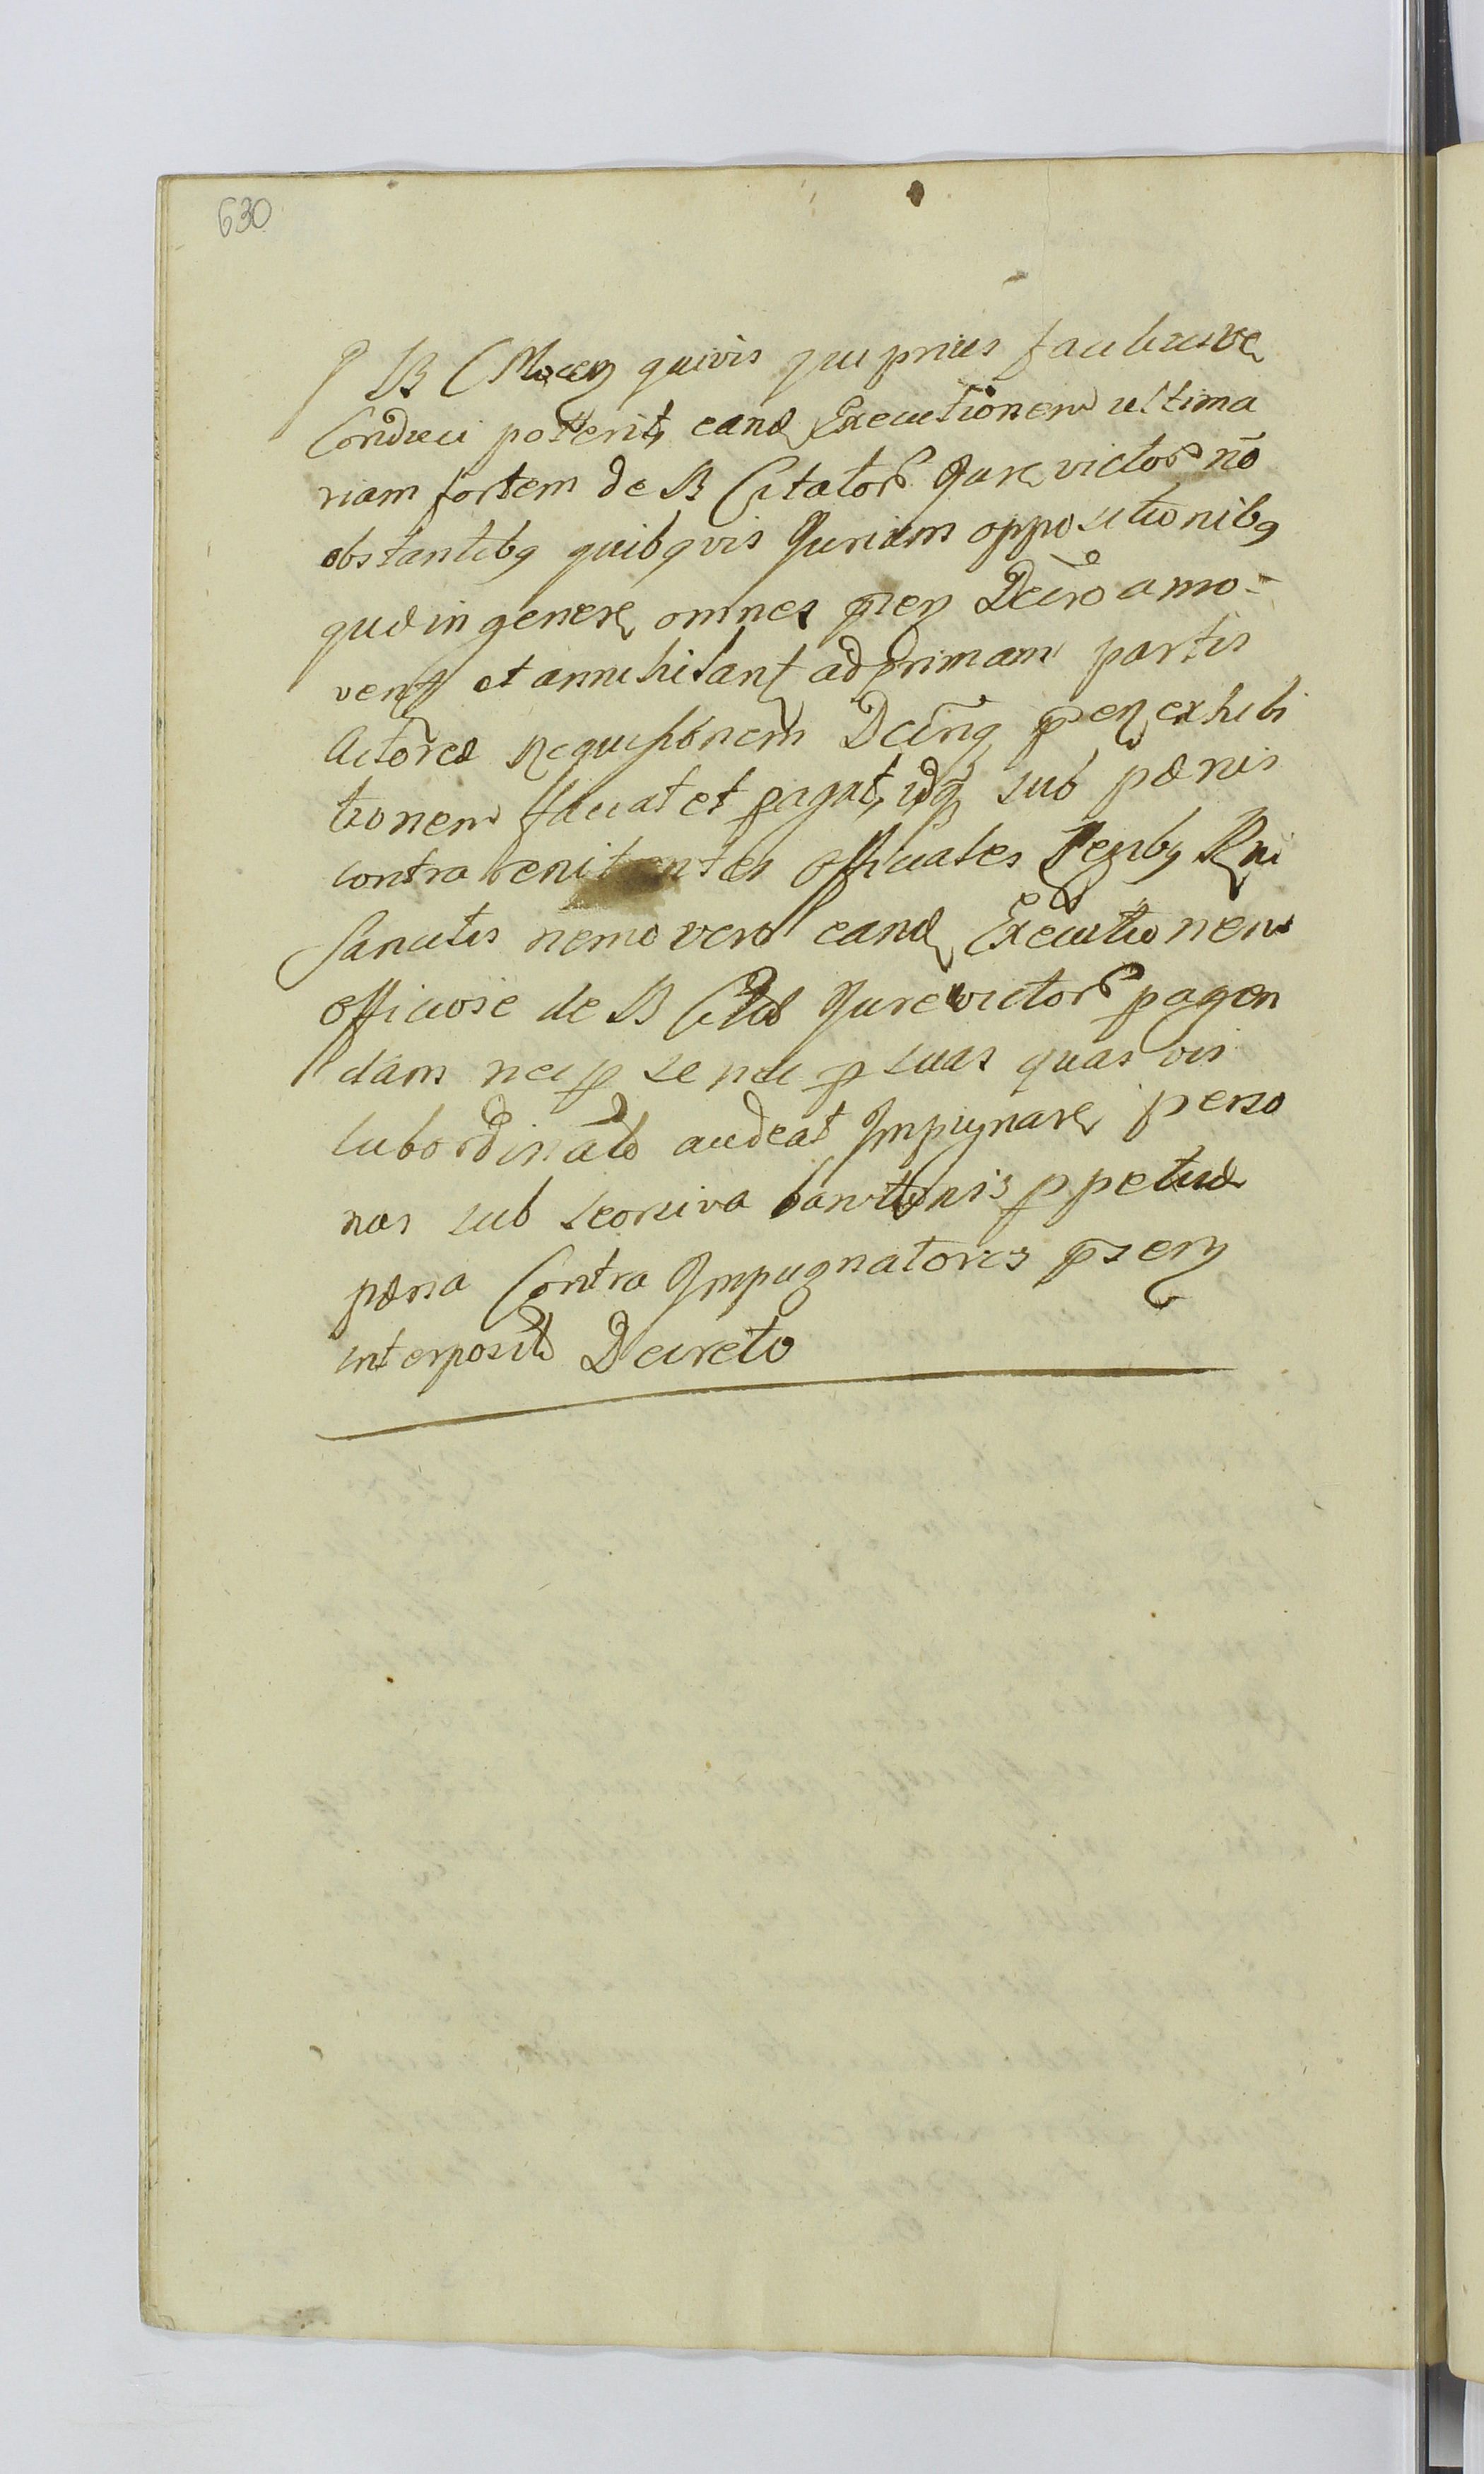 630
B Mocen quivis qui prius faciliusve
Conduci potterit, eand Executionem ultima
riam fortem de B Citator Jure victor nō
obstantibq quibqvis Juridm oppositionibq
quas in genere omnes pñen Decro amo-
vent et annihilant ad primam partis
Actores requisitionem Decring pñen exhibi
tionem faciat et pagat, idq sub pœnis
contra renitentes officiales Legibq Rni
Sancitis nemo vero eand Executionem
officiose de B Citat Jurevictor pagen
dam nec p se nec p suas quas vis
subordinatas audeat Impugnare perso
nas sub seorsiva bannitionis ppetuæ
pœna Contra Impugnatores psen
interposito Decreto